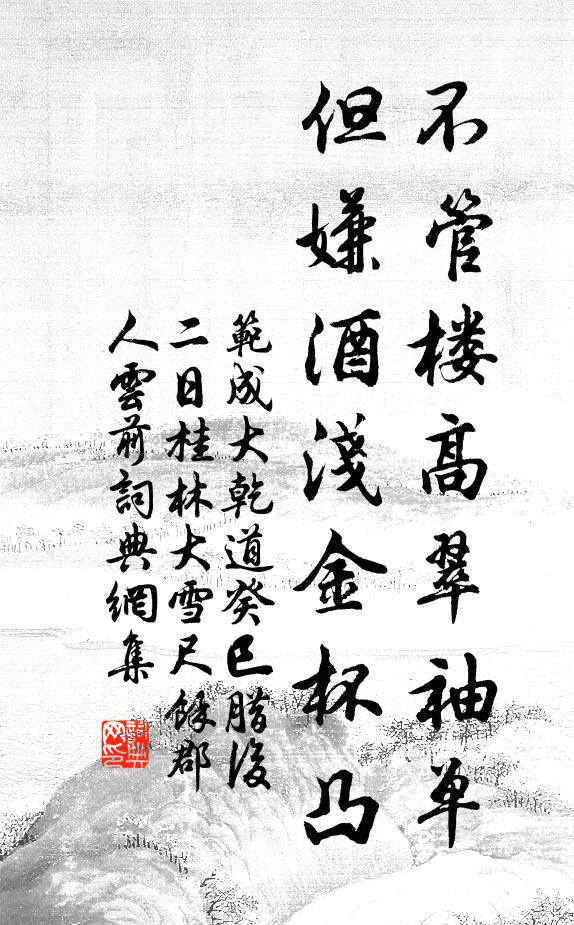 不管楼高翠袖单
但嫌酒淺金杯凸
範成大乾道癸巳腊後
二日桂林大雪尺餘郡
人雲前詞典網集